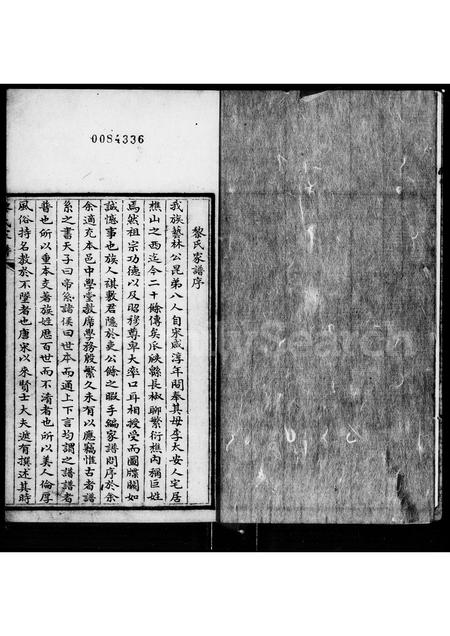 0084336
黎氏家譜序
我族藝林公昆弟八人自宋咸淳年間奉其母李太安人宅居
樵山之西迄今二十餘傳矣瓜瓞縣長椒聊繁衍樵內稱巨姓
焉然祖宗功德以及昭穆尊卑大率口耳相授受而圖牒闕如
誠憾事也族人祺敷君隱於吏公餘之暇手編家譜問序於余
余適充本邑中學堂教席學務殷繁久未有以應竊惟古者譜
系之書天子曰帝系諸侯曰世本而通上下言均謂之譜譜者
普也所以重本支著族姓歷百世而不淆者也所以美人倫厚
風俗持名教於不墜者也唐宋以來賢士大夫遞有撰述其時